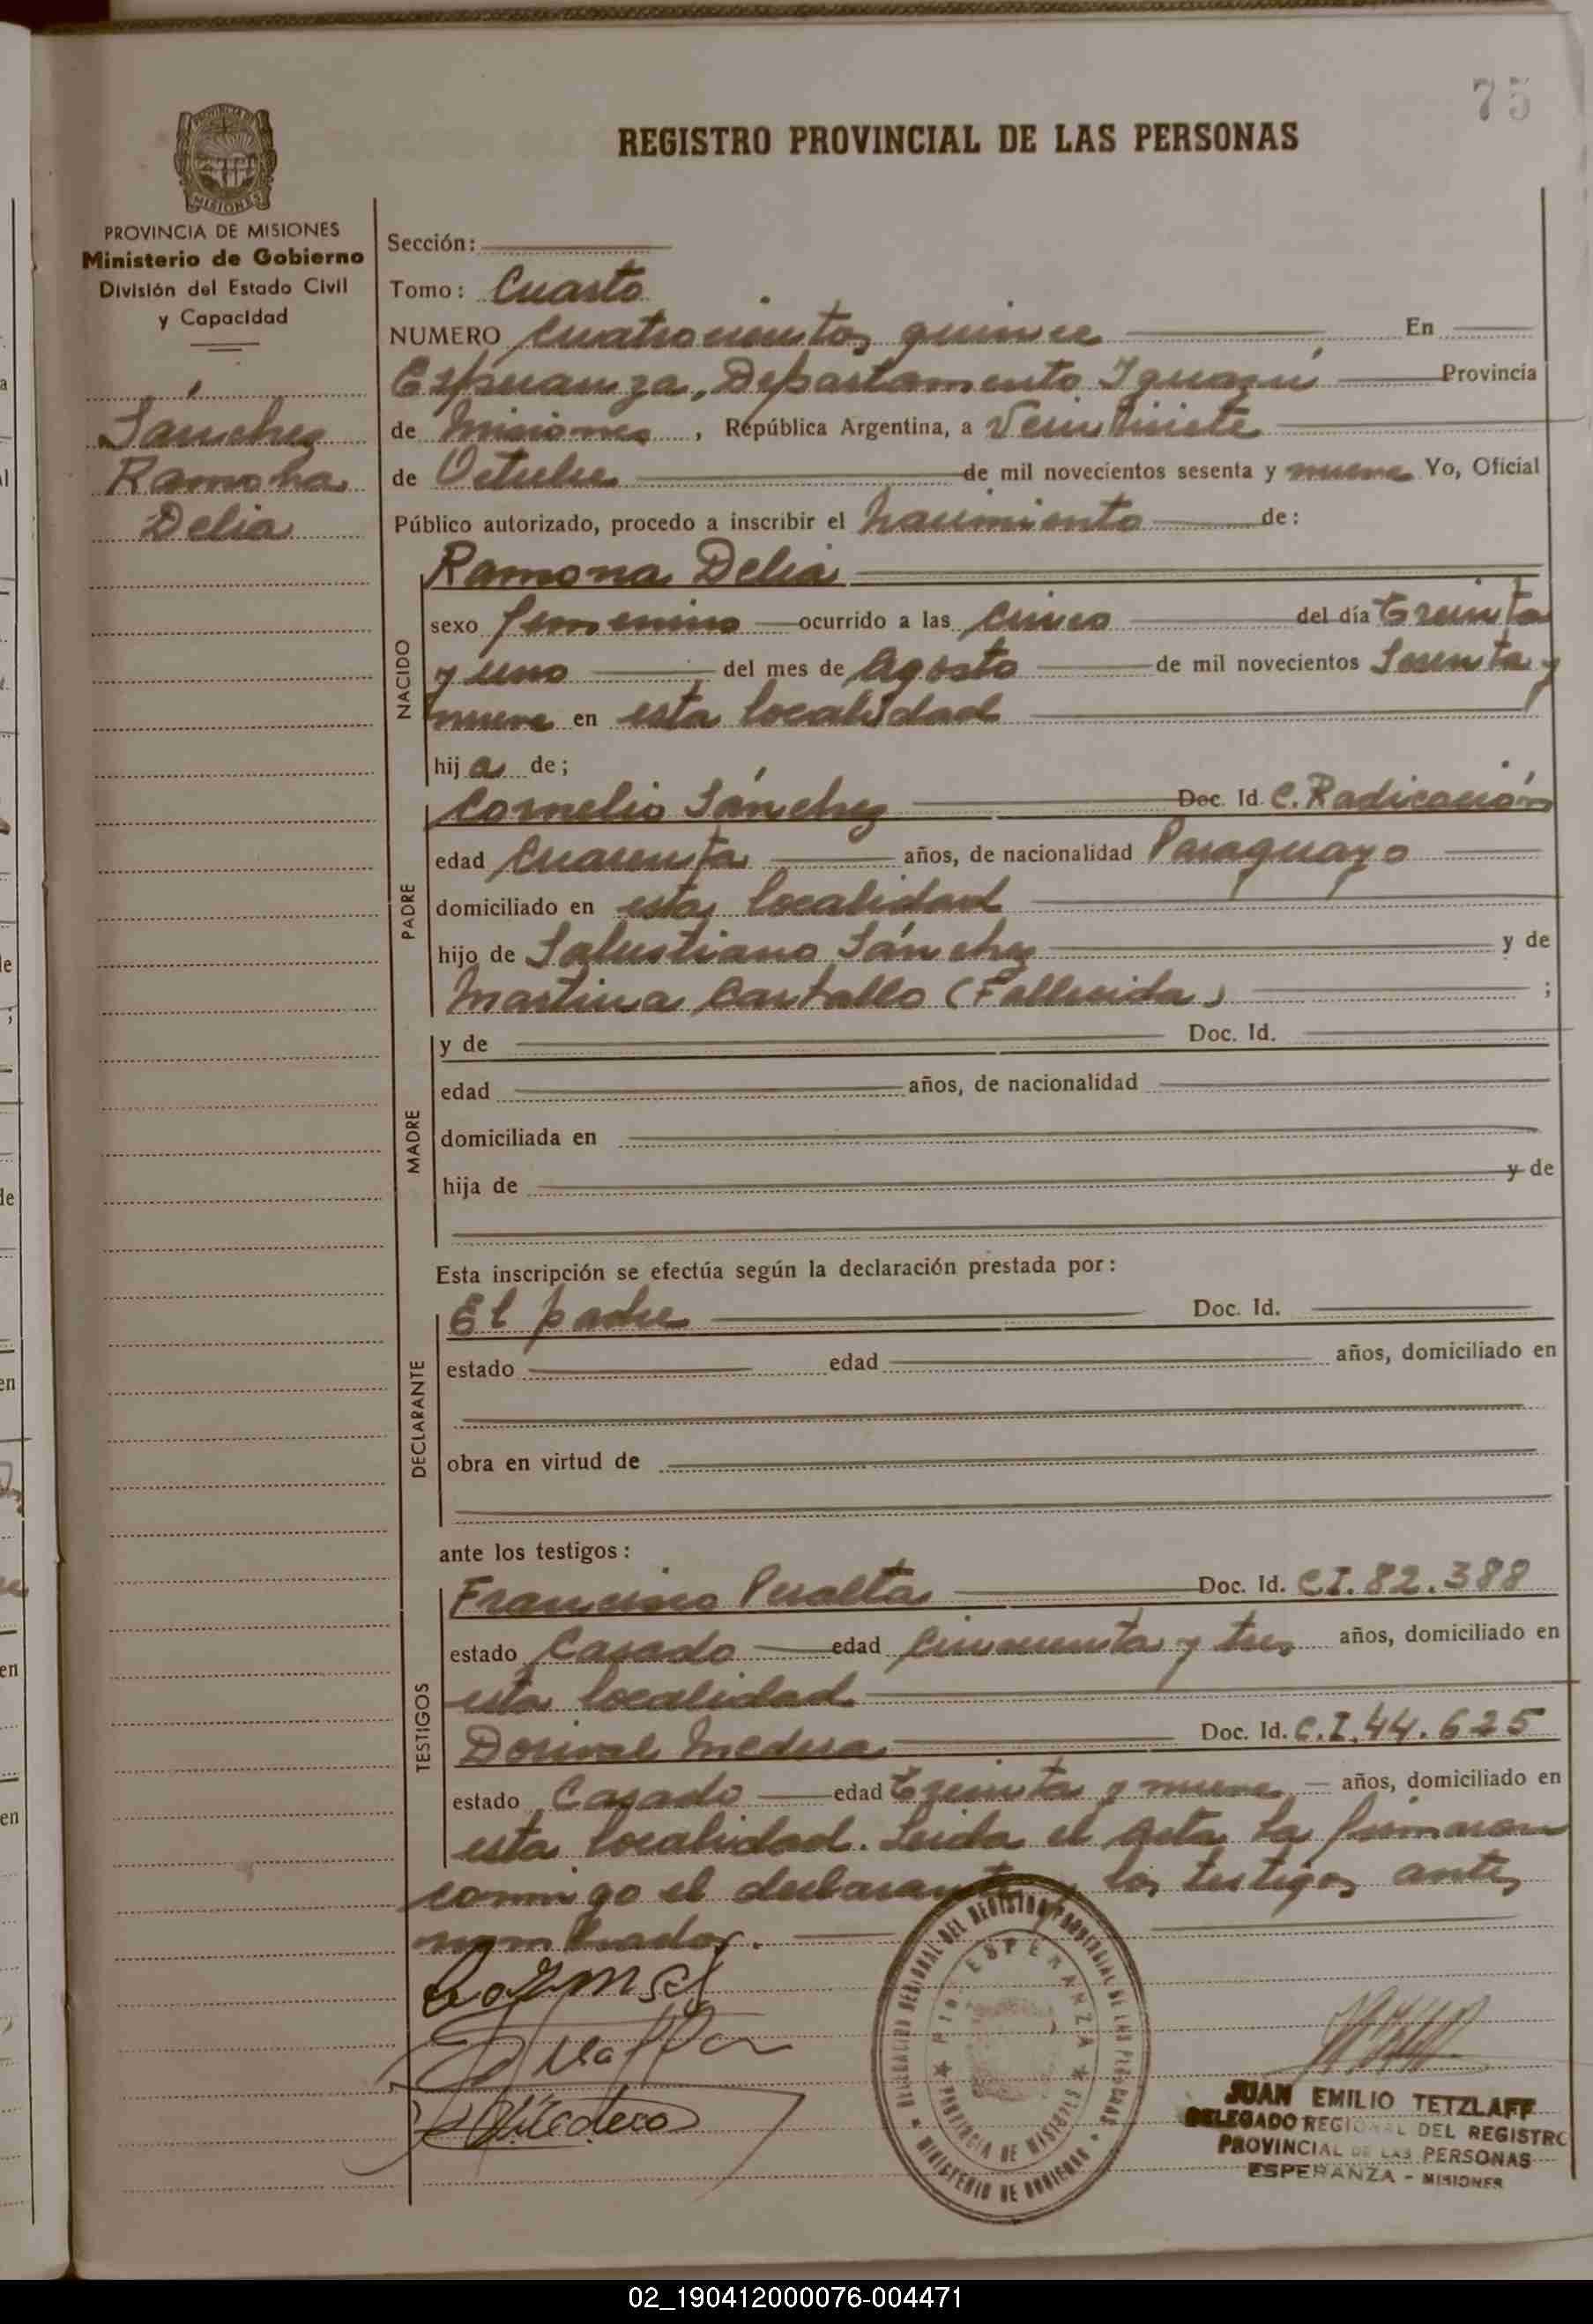 75
REGISTRO PROVINCIAL DE LAS PERSONAS
MISIONES
PROVINCIA DE MISIONES
Ministerio de Gobierno
División del Estado Civil
y Capacidad
Sánchez
Ramona
Delia
Sección:
Tomo: Cuarto
NUMERO Cuatrocientos quince En
Esperanza, Departamento Iguazú Provincia
de Misiones, República Argentina, a Veintisiete
de Octubre de mil novecientos sesenta y nueve Yo, Oficial
Público autorizado, procedo a inscribir el Nacimiento de:
NACIDO
Ramona Delia
sexo femenino ocurrido a las Cinco del día Treinta
y uno del mes de Agosto de mil novecientos Sesenta y
nueve en esta localidad
hija de;
PADRE
Cornelio Sánchez Doc. Id. C. Radicación
edad Cuarenta años, de nacionalidad Paraguayo
domiciliado en esta localidad
hijo de Salustiano Sánchez y de
Martina (Fallecida) ;
MADRE
y de Doc. Id.
edad años, de nacionalidad
domiciliada en
hija de y de
Esta inscripción se efectúa según la declaración prestada por:
DECLARANTE
El padre Doc. Id.
estado edad años, domiciliado en
obra en virtud de
ante los testigos:
TESTIGOS
Francisco Peralta Doc. Id. C.I. 82.388
estado Casado edad Cincuenta y tres años, domiciliado en
esta localidad
Dorival Medera Doc. Id. C.I. 44.625
estado Casado edad Treinta y nueve años, domiciliado en
esta localidad. Leida el acta la firmaron
conmigo el declarante y los testigos antes
nombrados.
DELEGACION REGIONAL DEL REGISTRO PROVINCIAL DE LAS PERSONAS
ESPERANZA
PROVINCIA DE MISIONES
MINISTERIO DE GOBIERNO
JUAN EMILIO TETZLAFF
DELEGADO REGIONAL DEL REGISTRO
PROVINCIAL DE LAS PERSONAS
ESPERANZA - MISIONES
02_190412000076-004471